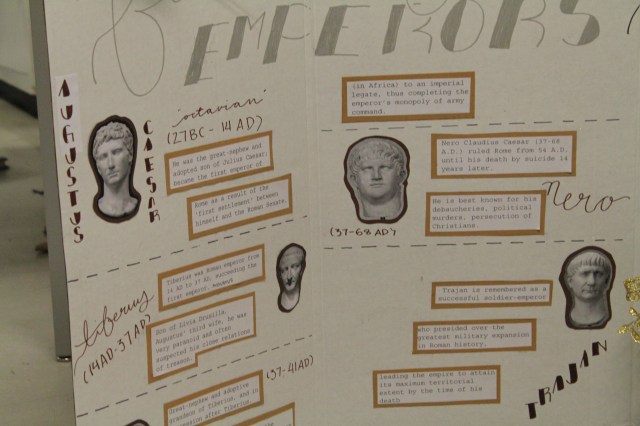 EMPERORS
AUGUSTUS
CAESAR
"octavian"
(27BC - 14 AD)
He was the great-nephew and
adopted son of Julius Caesar;
became the first emperor of
Rome as a result of the
'first settlement' between
himself and the Roman Senate
tiberius
(14AD-37AD)
Tiberius was Roman emperor from
14 AD to 37 AD, succeeding the
first emperor,
Son of Livia Drusilla,
Augustus' third wife, he was
very paranoid and often
suspected his close relations
of treason.
(37-41AD)
Great-nephew and adoptive
grandson of Tiberius, and in
succession after Tiberius
(in Africa) to an imperial
legate, thus completing the
emperor's monopoly of army
command.
Nero Claudius Caesar (37-68
A.D.) ruled Rome from 54 A.D.
until his death by suicide 14
years later.
He is best known for his
debaucheries, political
murders, persecution of
Christians.
nero
(37-68 AD)
Trajan is remembered as a
successful soldier-emperor
who presided over the
greatest military expansion
in Roman history,
leading the empire to attain
its maximum territorial
extent by the time of his
death
TRAJAN